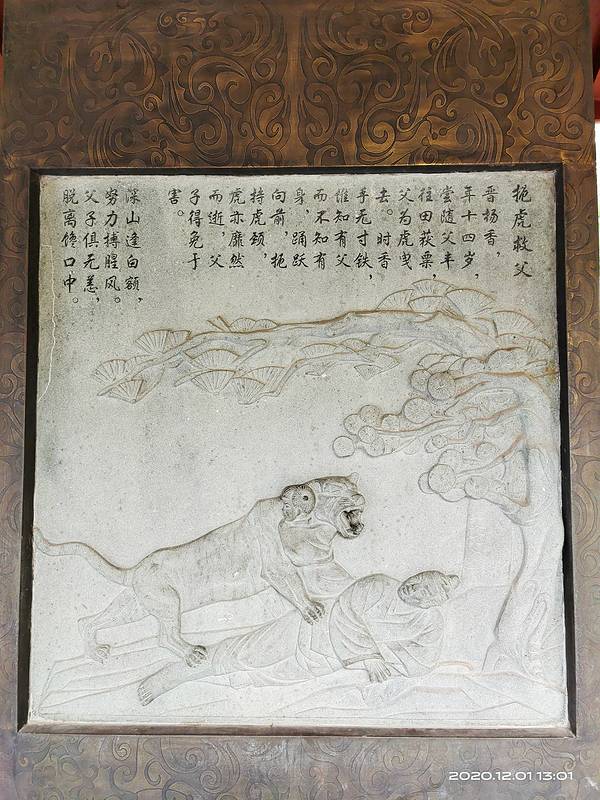 扼虎救父
晋扬香，
年十四岁，
尝随父丰
往田获粟，
父为虎曳
去。时香
手无寸铁，
惟知有父
而不知有
身，踊跃
向前，扼
持虎颈，
虎亦靡然
而逝，父
子得免于
害。
深山逢白额，
努力搏腥风。
父子俱无恙，
脱离馋口中。
2020.12.01 13:01